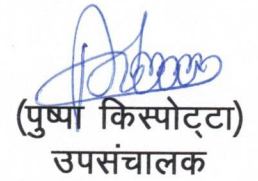 (पुष्पा किस्पोट्टा)
उपसंचालक